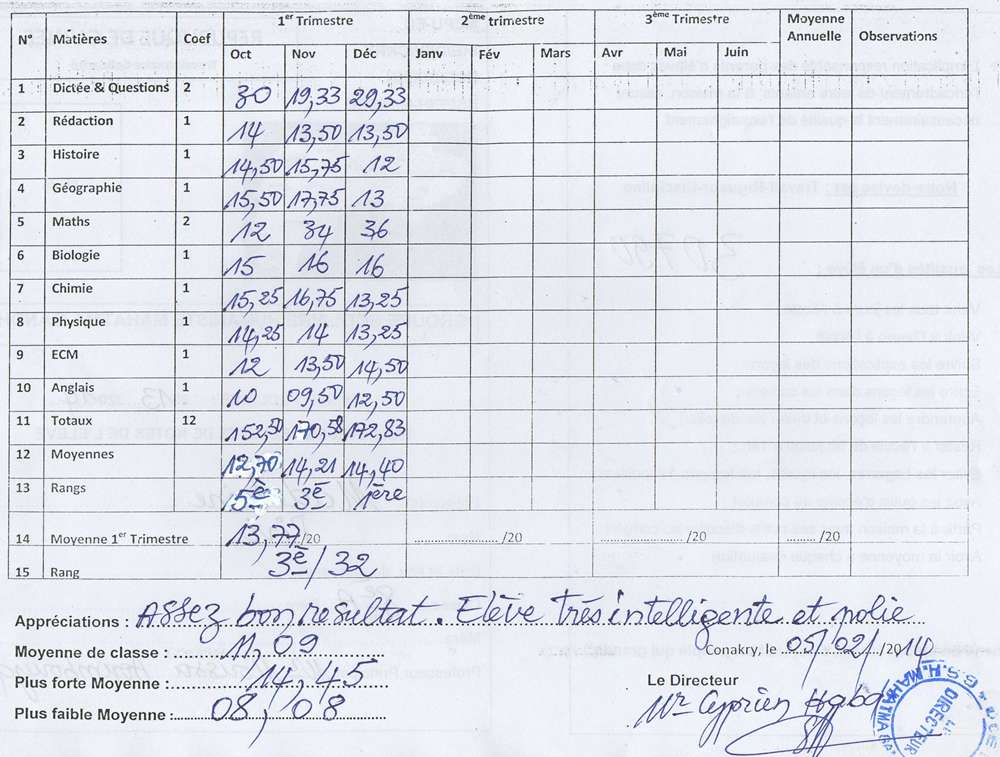 1er Trimestre 2ème trimestre 3ème Trimestre Moyenne Annuelle Observations
N° Matières Coef Oct Nov Déc Janv Fév Mars Avr Mai Juin
1 Dictée & Questions 2 30 19,33 29,33
2 Rédaction 1 14 13,50 13,50
3 Histoire 1 14,50 15,75 12
4 Géographie 1 15,50 17,75 13
5 Maths 2 12 34 36
6 Biologie 1 15 16 16
7 Chimie 1 15,25 16,75 13,25
8 Physique 1 14,25 14 13,25
9 ECM 1 12 13,50 14,50
10 Anglais 1 10 09,50 12,50
11 Totaux 12 152,50 170,58 172,83
12 Moyennes 12,70 14,21 14,40
13 Rangs 5è 3è 1ère
14 Moyenne 1er Trimestre 13,77/20 ................/20 ................/20 ......../20
15 Rang 3è/32
Appréciations : Assez bon resultat. Elève très intelligente et polie
Moyenne de classe : 11,09 Conakry, le 05/02/2014
Plus forte Moyenne : 14,45 Le Directeur
Plus faible Moyenne : 08,08 Mr Cyprien Haba
LE DIRECTEUR